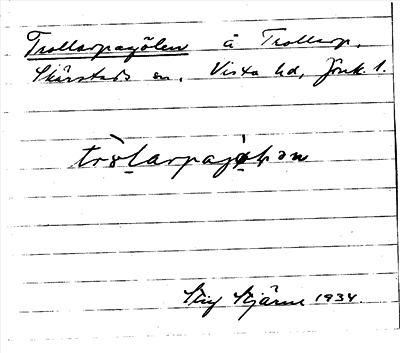 Trollarpagölen å Trollarp.
Skärstads sn. Vista hd, Jönk. l.
tròlarpajø̀ḷən
Stig Stjärne 1934.